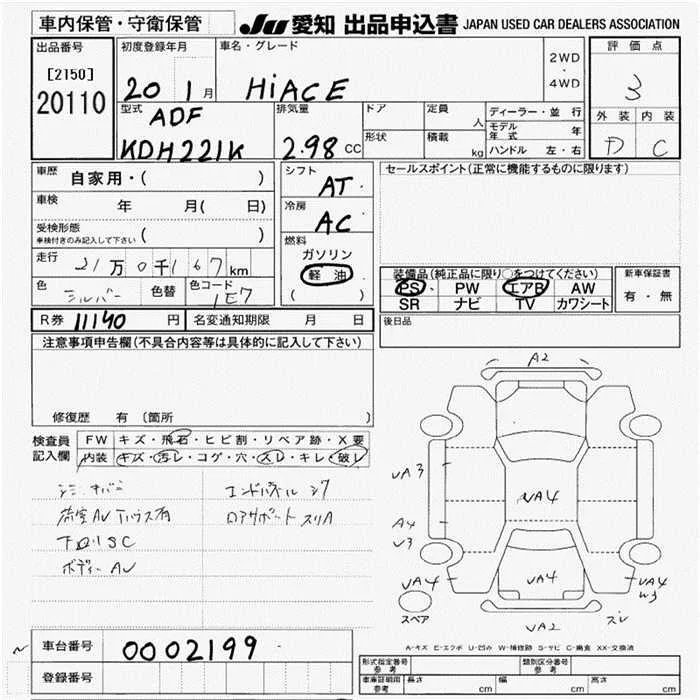 車内保管・守衛保管
JU 愛知 出品申込書 JAPAN USED CAR DEALERS ASSOCIATION
出品番号
[2150]
20110
初度登録年月
20 1月
車名・グレード
HiACE
2WD
・
4WD
評価点
3
外装 内装
D C
型式
ADF
KDH221K
排気量
2.98 CC
ドア
形状
定員 人
積載 kg
ディーラー・並行
モデル年式 年
ハンドル 左・右
車歴 自家用・( )
車検 年 月( 日)
受検形態
車検付きのみ記入して下さい ( )
走行 21万0千167km
色 シルバー 色替 色コード 1E7
シフト
AT
冷房
AC
燃料
ガソリン
軽油
( )
セールスポイント(正常に機能するものに限ります)
装備品(純正品に限り○をつけてください)
PS・ PW エアB AW
SR ナビ TV カワシート
新車保証書
有・無
R券 11140 円 名変通知期限 月 日
後日品
注意事項申告欄(不具合内容等は具体的に記入して下さい)
修復歴 有 〔箇所
検査員
記入欄
FW キズ・飛石・ヒビ割・リペア跡・X要
内装 キズ・汚レ・コゲ・穴・スレ・キレ・破レ
エンドパネル
ボディー AV
A2
VA3
A4
V3
VA4
VA4
VA4
VA4
W3
VA2
スレ
スペア
A-キズ E-エクボ U-凹み W-補修跡 S-サビ C-腐食 XX-交換済
車台番号 0002199
登録番号
形式指定番号
参考
類別区分番号
参考
車庫証明用
参考
長さ cm 幅 cm 高さ cm